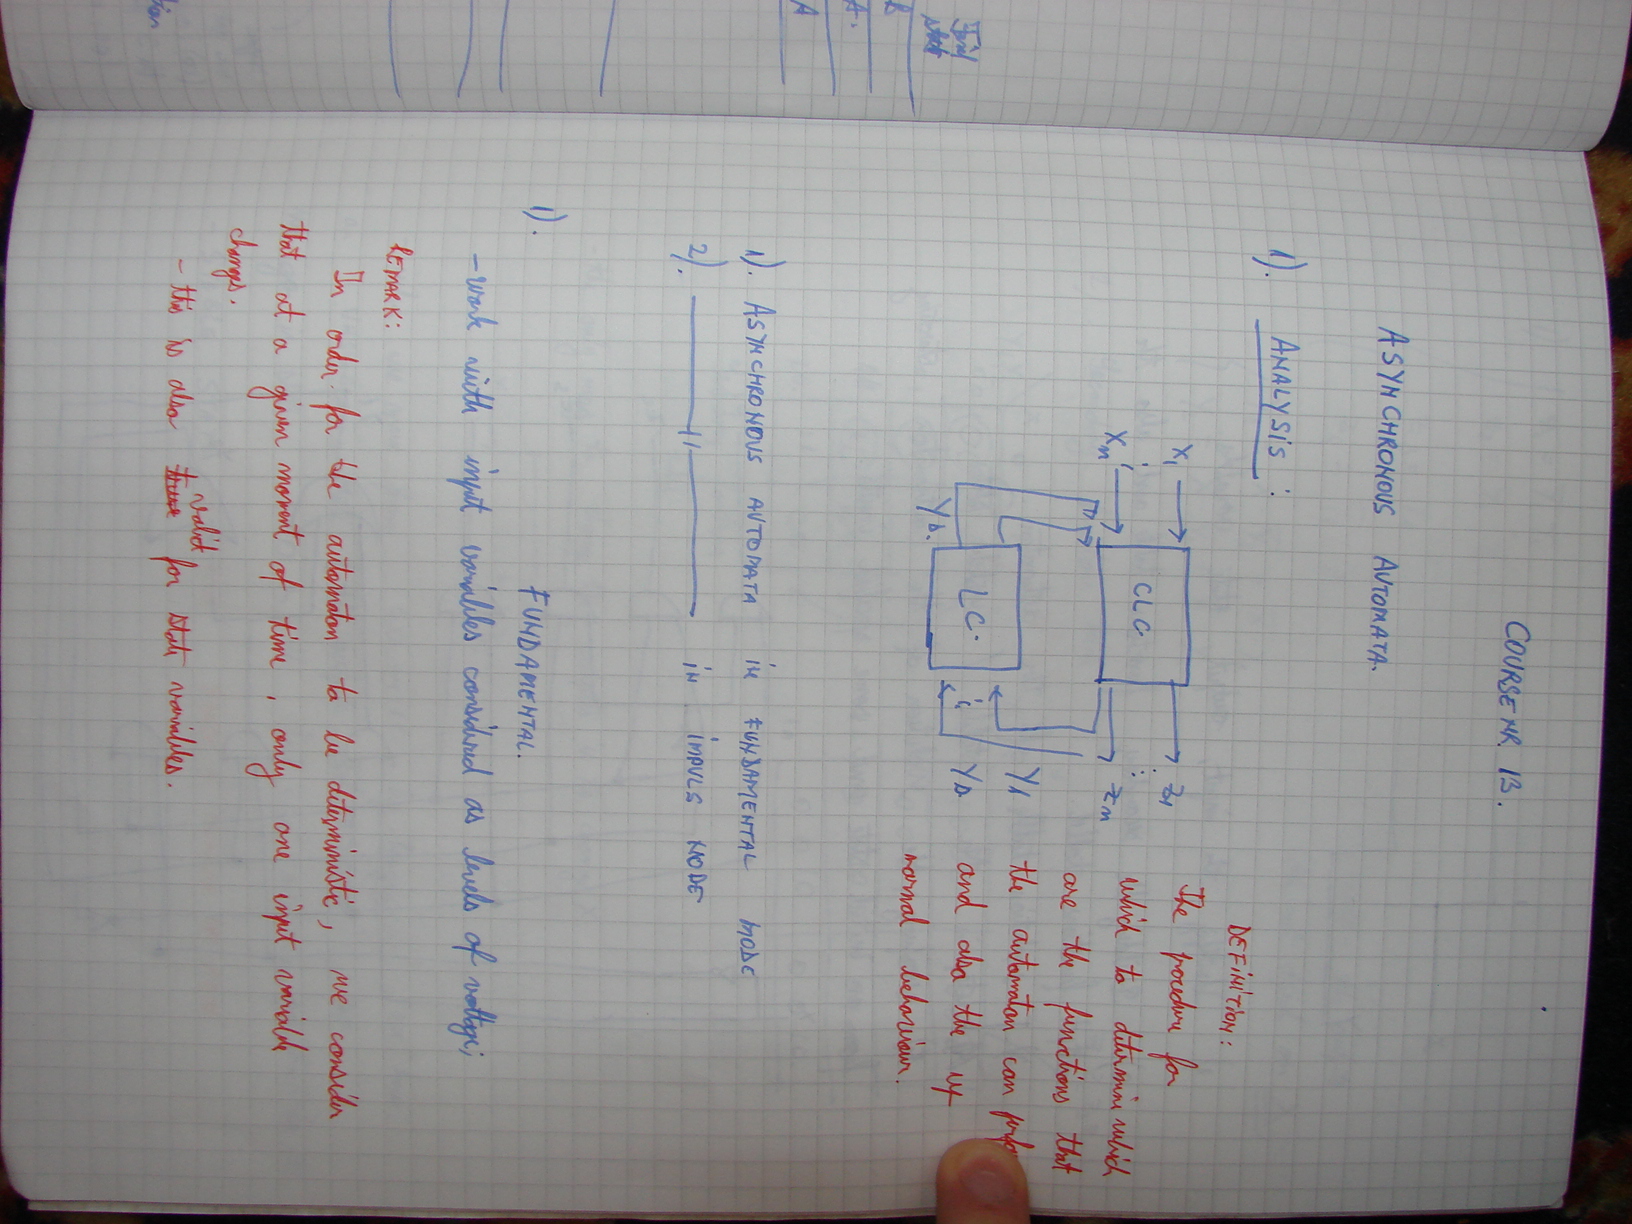 COURSE NR. 13.
ASYNCHRONOUS AUTOMATA.
1). ANALYSIS :
X1
Xm
CLC
Z1
Zm
LC.
Y1
YΔ
YΔ.
DEFINITION:
The procedure for
which to determine which
are the functions that
the automaton can
and also the
normal behaviour.
1). ASYNCHRONOUS AUTOMATA in FUNDAMENTAL MODE
2). ——— 11 ——— in IMPULS MODE
1). FUNDAMENTAL.
- work with input variables considered as levels of voltage;
REMARK:
In order for the automaton to be deterministic, we consider
that at a given moment of time, only one input variable
changes.
- this is also valid for state variables.